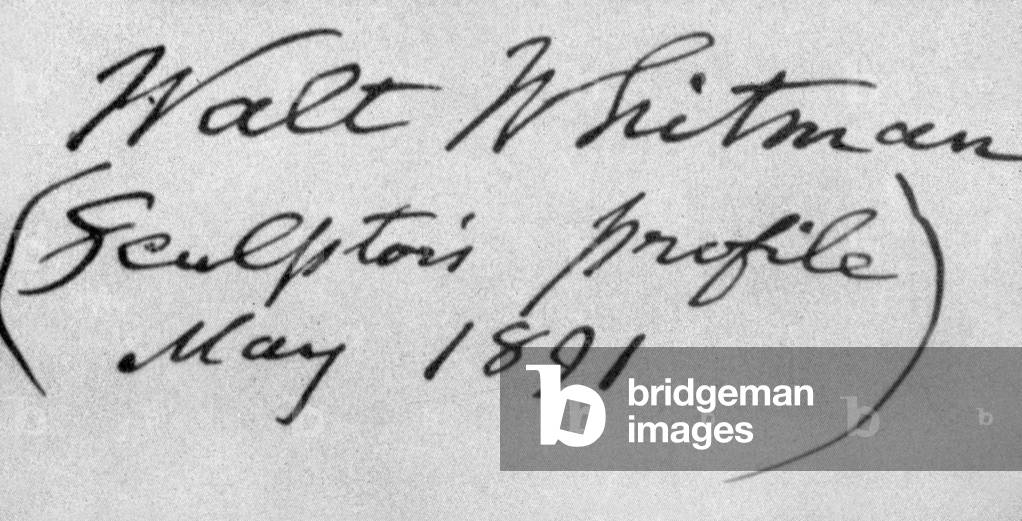 Walt Whitman
(Sculptor's profile
May 1891)
bridgeman
images